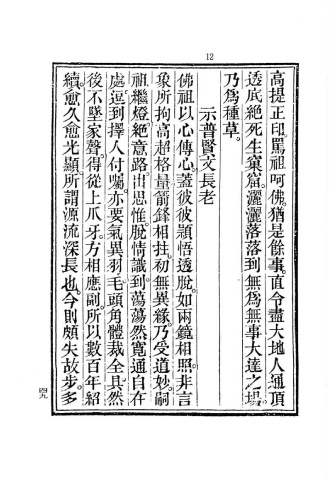 12
高提正印罵祖呵佛。猶是餘事。直令盡大地人通頂
透底絶死生窠窟。灑灑落落到無爲無事大達之場。
乃爲種草。
示普賢文長老
佛祖以心傳心。蓋彼彼穎悟透脫。如兩鏡相照。非言
象所拘。高超格量。箭鋒相拄。初無異緣。乃受道妙。嗣
祖繼燈。絶意路。出思惟。脫情識。到蕩蕩然寬通自在
處。逗到擇人付囑。亦要氣異羽毛。頭角體裁全具。然
後不墜家聲。得從上爪牙。方相應副。所以數百年紹
續。愈久愈光顯。所謂源流深長也。今則頗失故步。多
四九